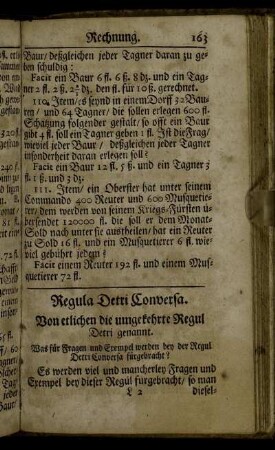 Rechnung. 163
Baur/ deßgleichen jeder Tagner daran zu ge-
ben schuldig:
Facit ein Baur 6 fl. 6 ß. 8 dz. und ein Tag-
ner 2 fl. 2 ß. 2 dz. den fl. für 10 ß. gerechnet.
110. Item/ es seynd in einem Dorff 32 Bau-
ren/ und 64 Tagner/ die sollen erlegen 600 fl.
Schatzung folgender gestalt/ so offt ein Baur
gibt 4 fl. soll ein Tagner geben 1 fl. Ist die Frag/
wieviel jeder Baur/ deßgleichen jeder Tagner
insonderheit daran erlegen soll?
Facit ein Baur 12 fl. 5 ß. und ein Tagner 3
fl. 1 ß. und 3 dz.
111. Item/ ein Oberster hat unter seinem
Commando 400 Reuter und 600 Musquetie-
rer/ dem werden von seinem Kriegs-Fürsten ü-
bersendet 120000 fl. die soll er dem Monat-
Sold nach unter sie austheilen/ hat ein Reuter
zu Sold 16 fl. und ein Musquetierer 6 fl. wie-
viel gebühret jedem?
Facit einem Reuter 192 fl. und einem Mus-
quetierer 72 fl.
Regula Detri Conversa.
Von etlichen die umgekehrte Regul
Detri genannt.
Was für Fragen und Exempel werden bey der Regul
Detri Conversa fürgebracht?
Es werden viel und mancherley Fragen und
Exempel bey dieser Regul fürgebracht/ so man
L 2 diesel-